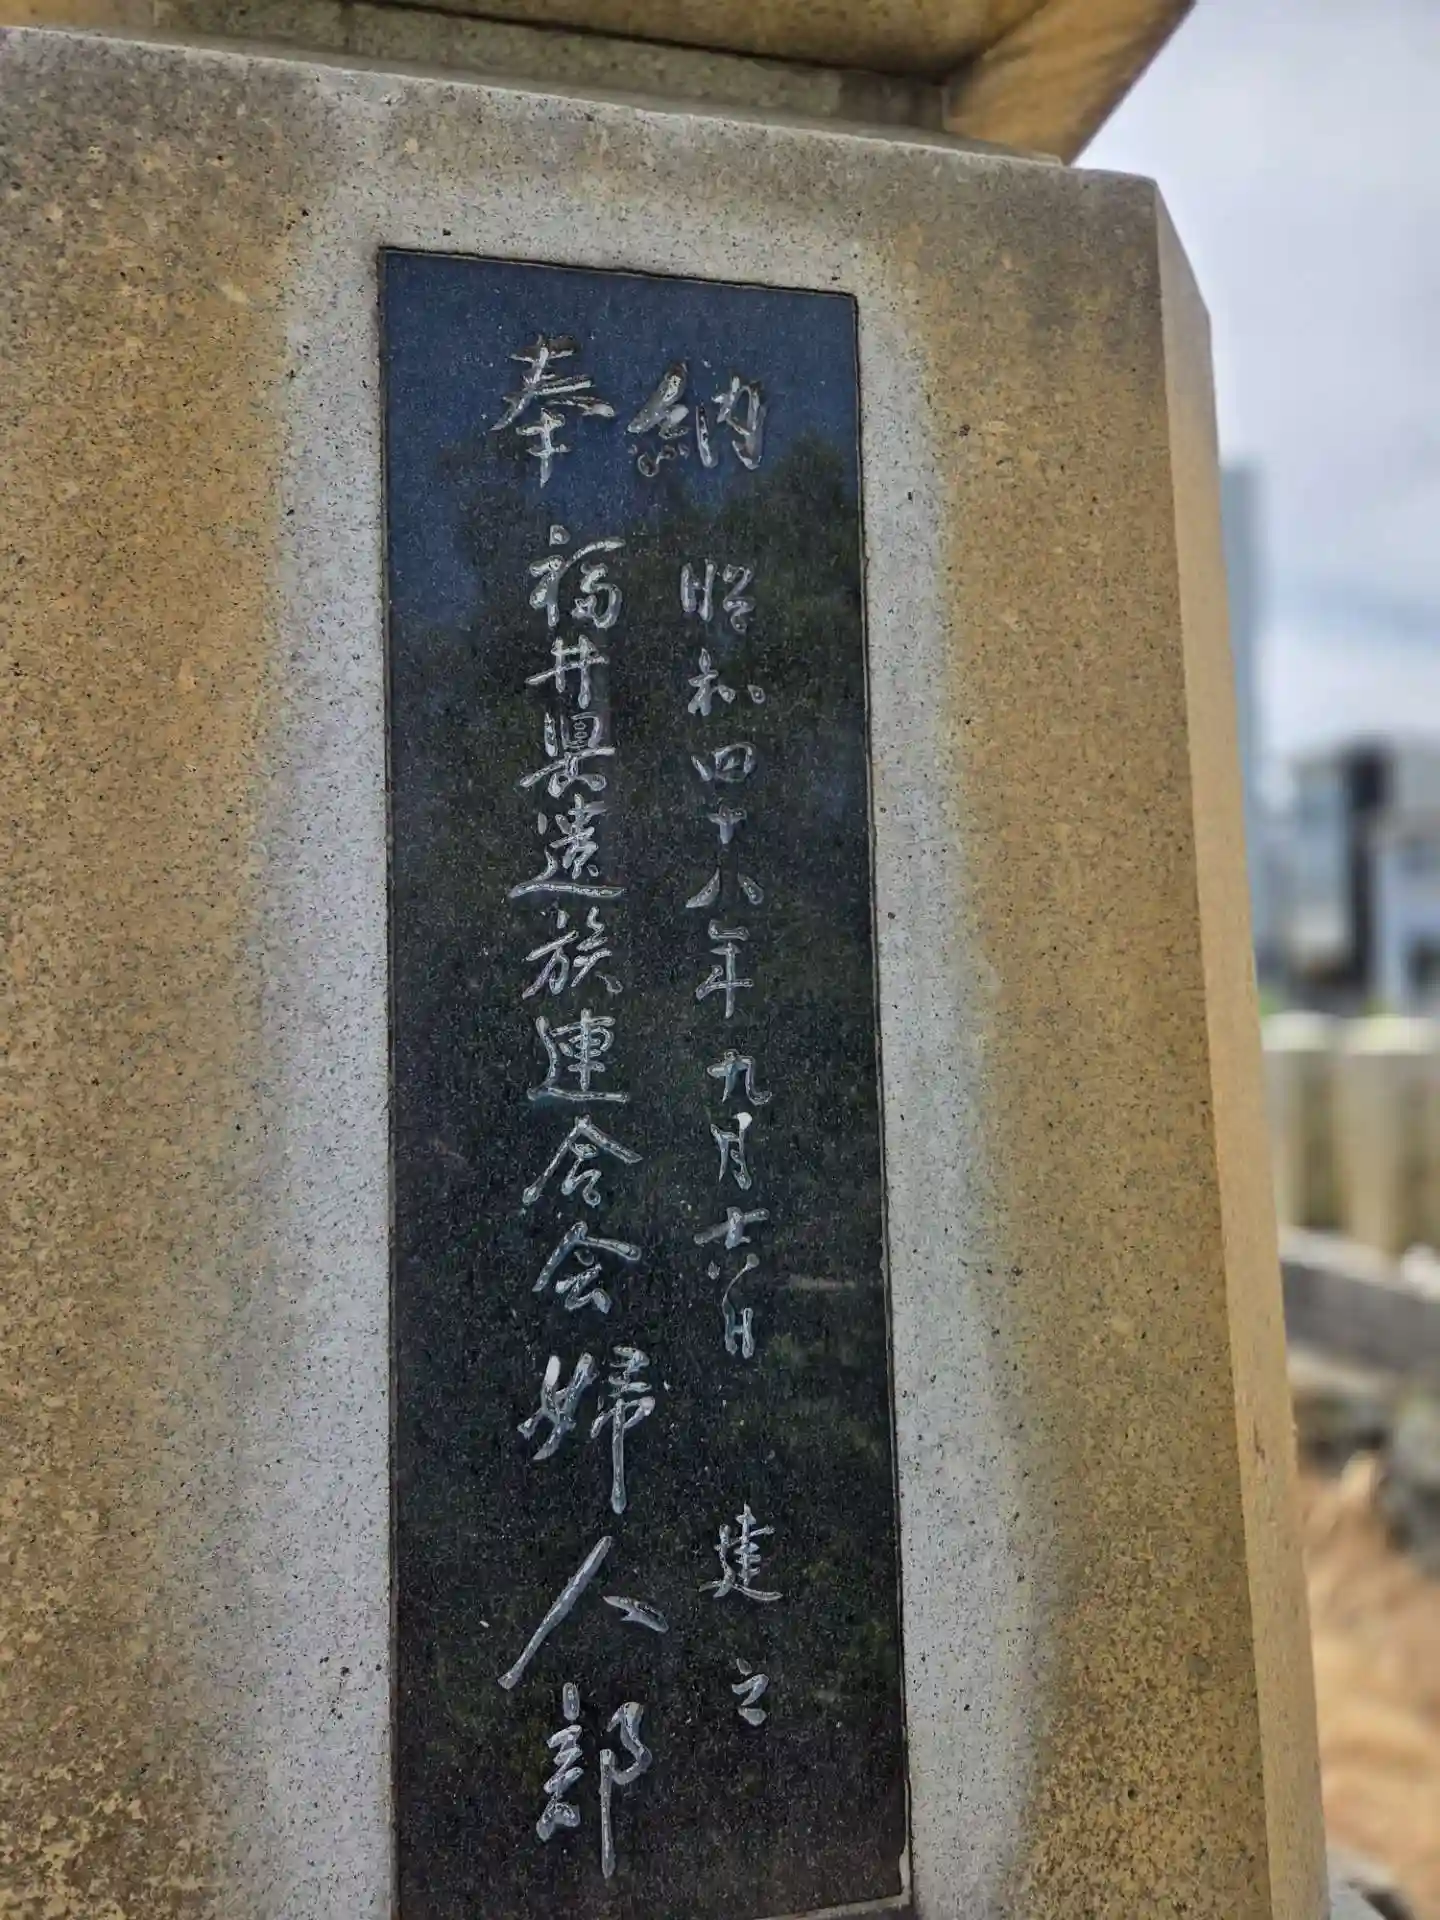 奉納
昭和四十八年九月十六日 建之
福井県遺族連合会婦人部